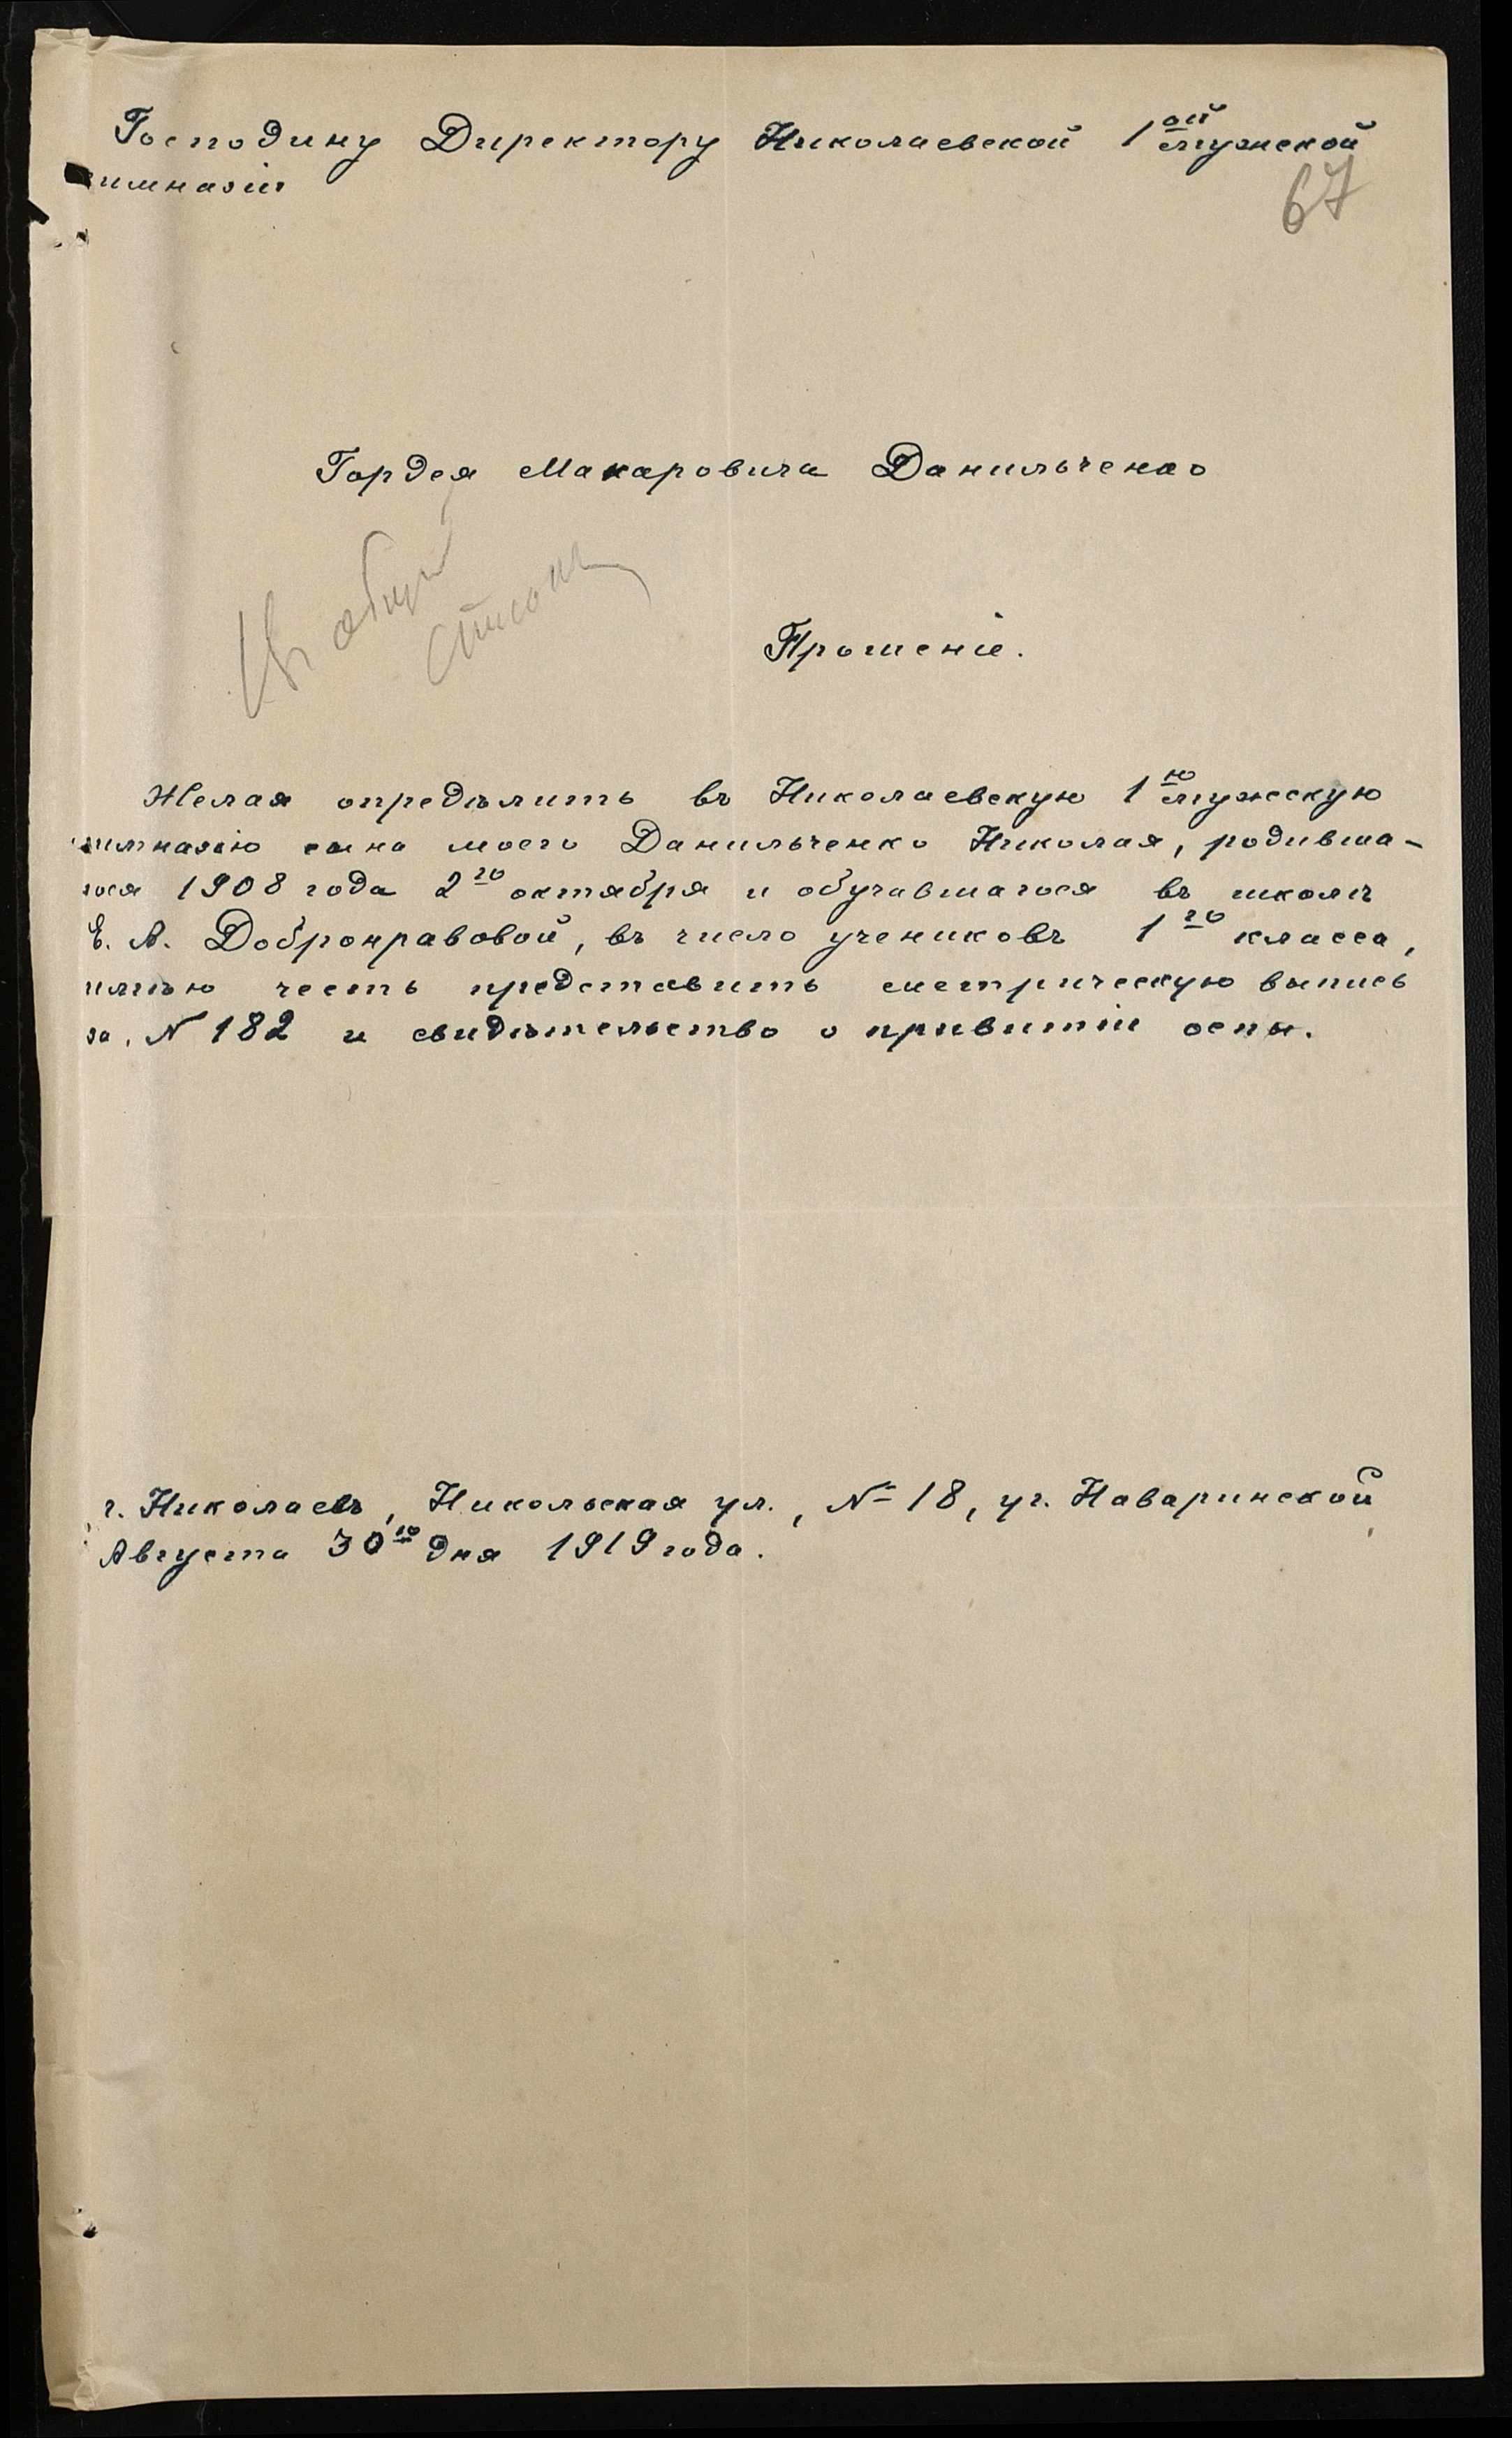 Господину Директору Николаевской 1ой мужской
гимназіи
67
Гордея Макаровича Данильченко
Въ общій
списокъ
Прошеніе.
Желая опредѣлить въ Николаевскую 1ю мужескую
гимназію сына моего Данильченко Николая, родивша-
гося 1908 года 2го октября и обучавшагося въ школѣ
Е. А. Добронравовой, въ число учениковъ 1го класса,
имѣю честь представить метрическую выпись
за № 182 и свидѣтельство о привитіи оспы.
г. Николаевъ, Никольская ул., № 18, уг. Наваринской
Августа 30го дня 1919 года.